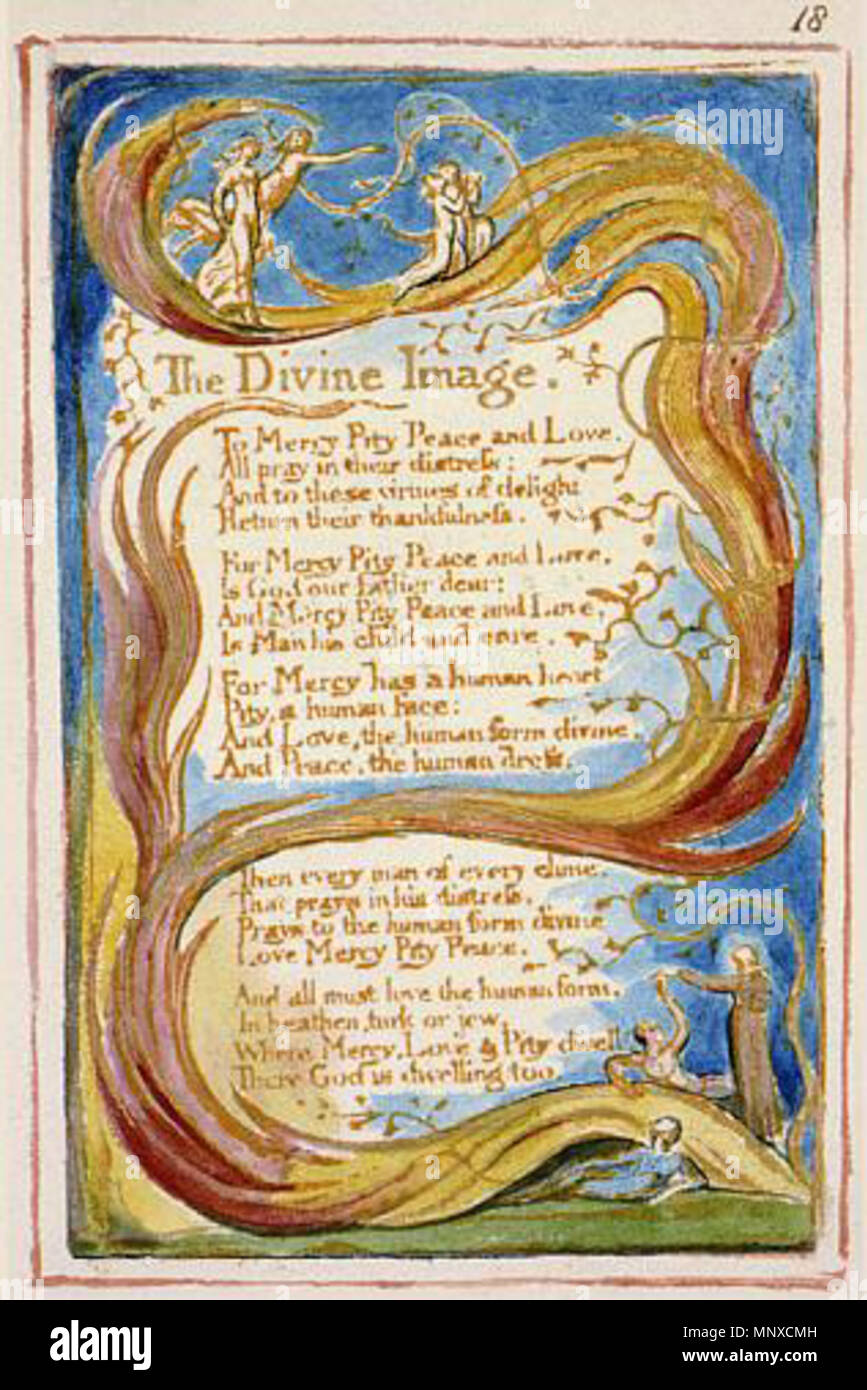 18
The Divine Image.
To Mercy Pity Peace and Love.
All pray in their distress:
And to these virtues of delight
Return their thankfulness.
For Mercy Pity Peace and Love,
Is God our father dear:
And Mercy Pity Peace and Love,
Is Man his child and care.
For Mercy has a human heart
Pity, a human face:
And Love, the human form divine,
And Peace, the human dress.
Then every man of every clime,
That prays in his distress,
Prays to the human form divine
Love Mercy Pity Peace.
And all must love the human form,
In heathen, turk or jew,
Where Mercy, Love & Pity dwell
There God is dwelling too
alamy
Image ID: MNXCMH
www.alamy.com